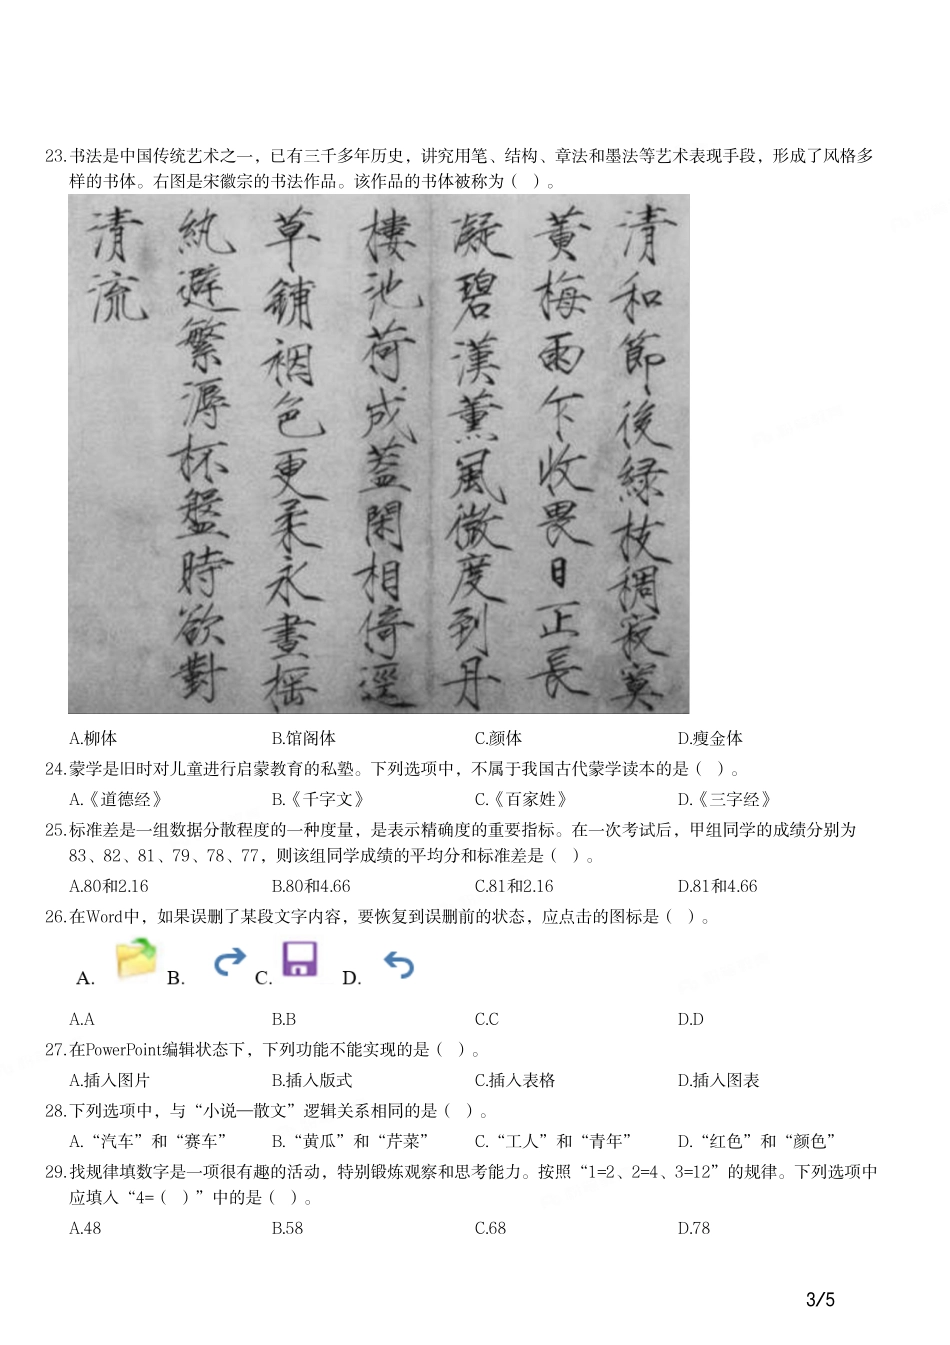 23.书法是中国传统艺术之一，已有三千多年历史，讲究用笔、结构、章法和墨法等艺术表现手段，形成了风格多
样的书体。右图是宋徽宗的书法作品。该作品的书体被称为（ ）。
清和節後緑枝稠寂寞
黄梅雨乍收畏日正長
凝碧漢薫風微度到丹
樓池荷成蓋閑相倚逕
草鋪裀色更柔永晝搖
紈避繁溽杯盤時欲對
清流
A.柳体 B.馆阁体 C.颜体 D.瘦金体
24.蒙学是旧时对儿童进行启蒙教育的私塾。下列选项中，不属于我国古代蒙学读本的是（ ）。
A.《道德经》 B.《千字文》 C.《百家姓》 D.《三字经》
25.标准差是一组数据分散程度的一种度量，是表示精确度的重要指标。在一次考试后，甲组同学的成绩分别为
83、82、81、79、78、77，则该组同学成绩的平均分和标准差是（ ）。
A.80和2.16 B.80和4.66 C.81和2.16 D.81和4.66
26.在Word中，如果误删了某段文字内容，要恢复到误删前的状态，应点击的图标是（ ）。
A. B. C. D.
A.A B.B C.C D.D
27.在PowerPoint编辑状态下，下列功能不能实现的是（ ）。
A.插入图片 B.插入版式 C.插入表格 D.插入图表
28.下列选项中，与“小说—散文”逻辑关系相同的是（ ）。
A.“汽车”和“赛车” B.“黄瓜”和“芹菜” C.“工人”和“青年” D.“红色”和“颜色”
29.找规律填数字是一项很有趣的活动，特别锻炼观察和思考能力。按照“1=2、2=4、3=12”的规律。下列选项中
应填入“4=（ ）”中的是（ ）。
A.48 B.58 C.68 D.78
3/5